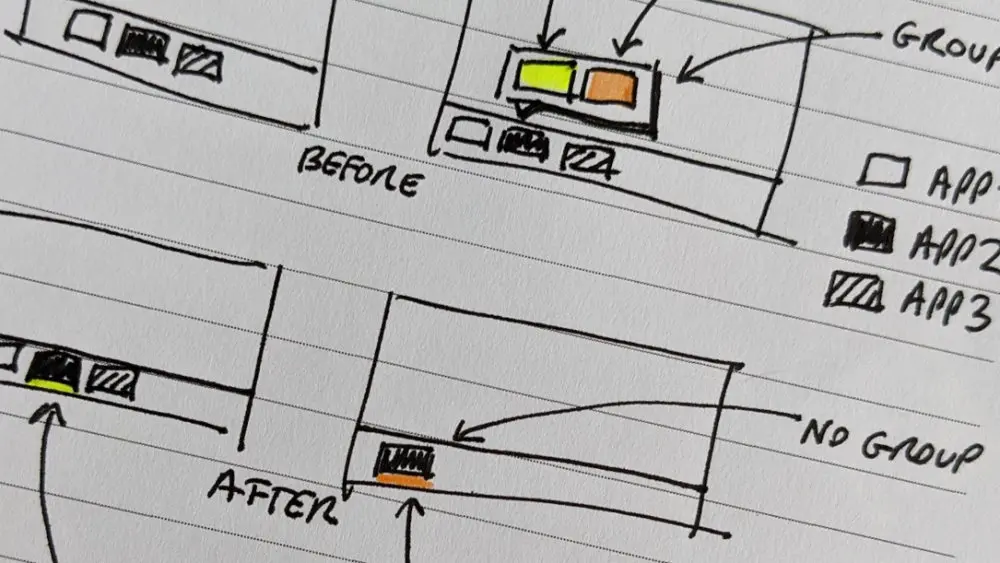 GROUP
BEFORE
APP
APP2
APP3
NO GROUP
AFTER